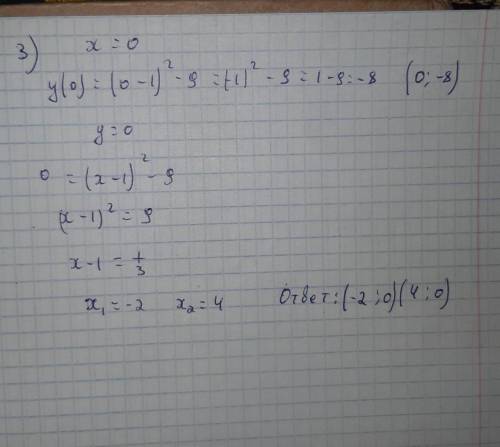 3) x = 0
y(0) = (0 - 1)² - 9 = (-1)² - 9 = 1 - 9 = -8 (0; -8)
y = 0
0 = (x - 1)² - 9
(x - 1)² = 9
x - 1 = ± 3
x₁ = -2 x₂ = 4 Ответ: (-2; 0) (4; 0)